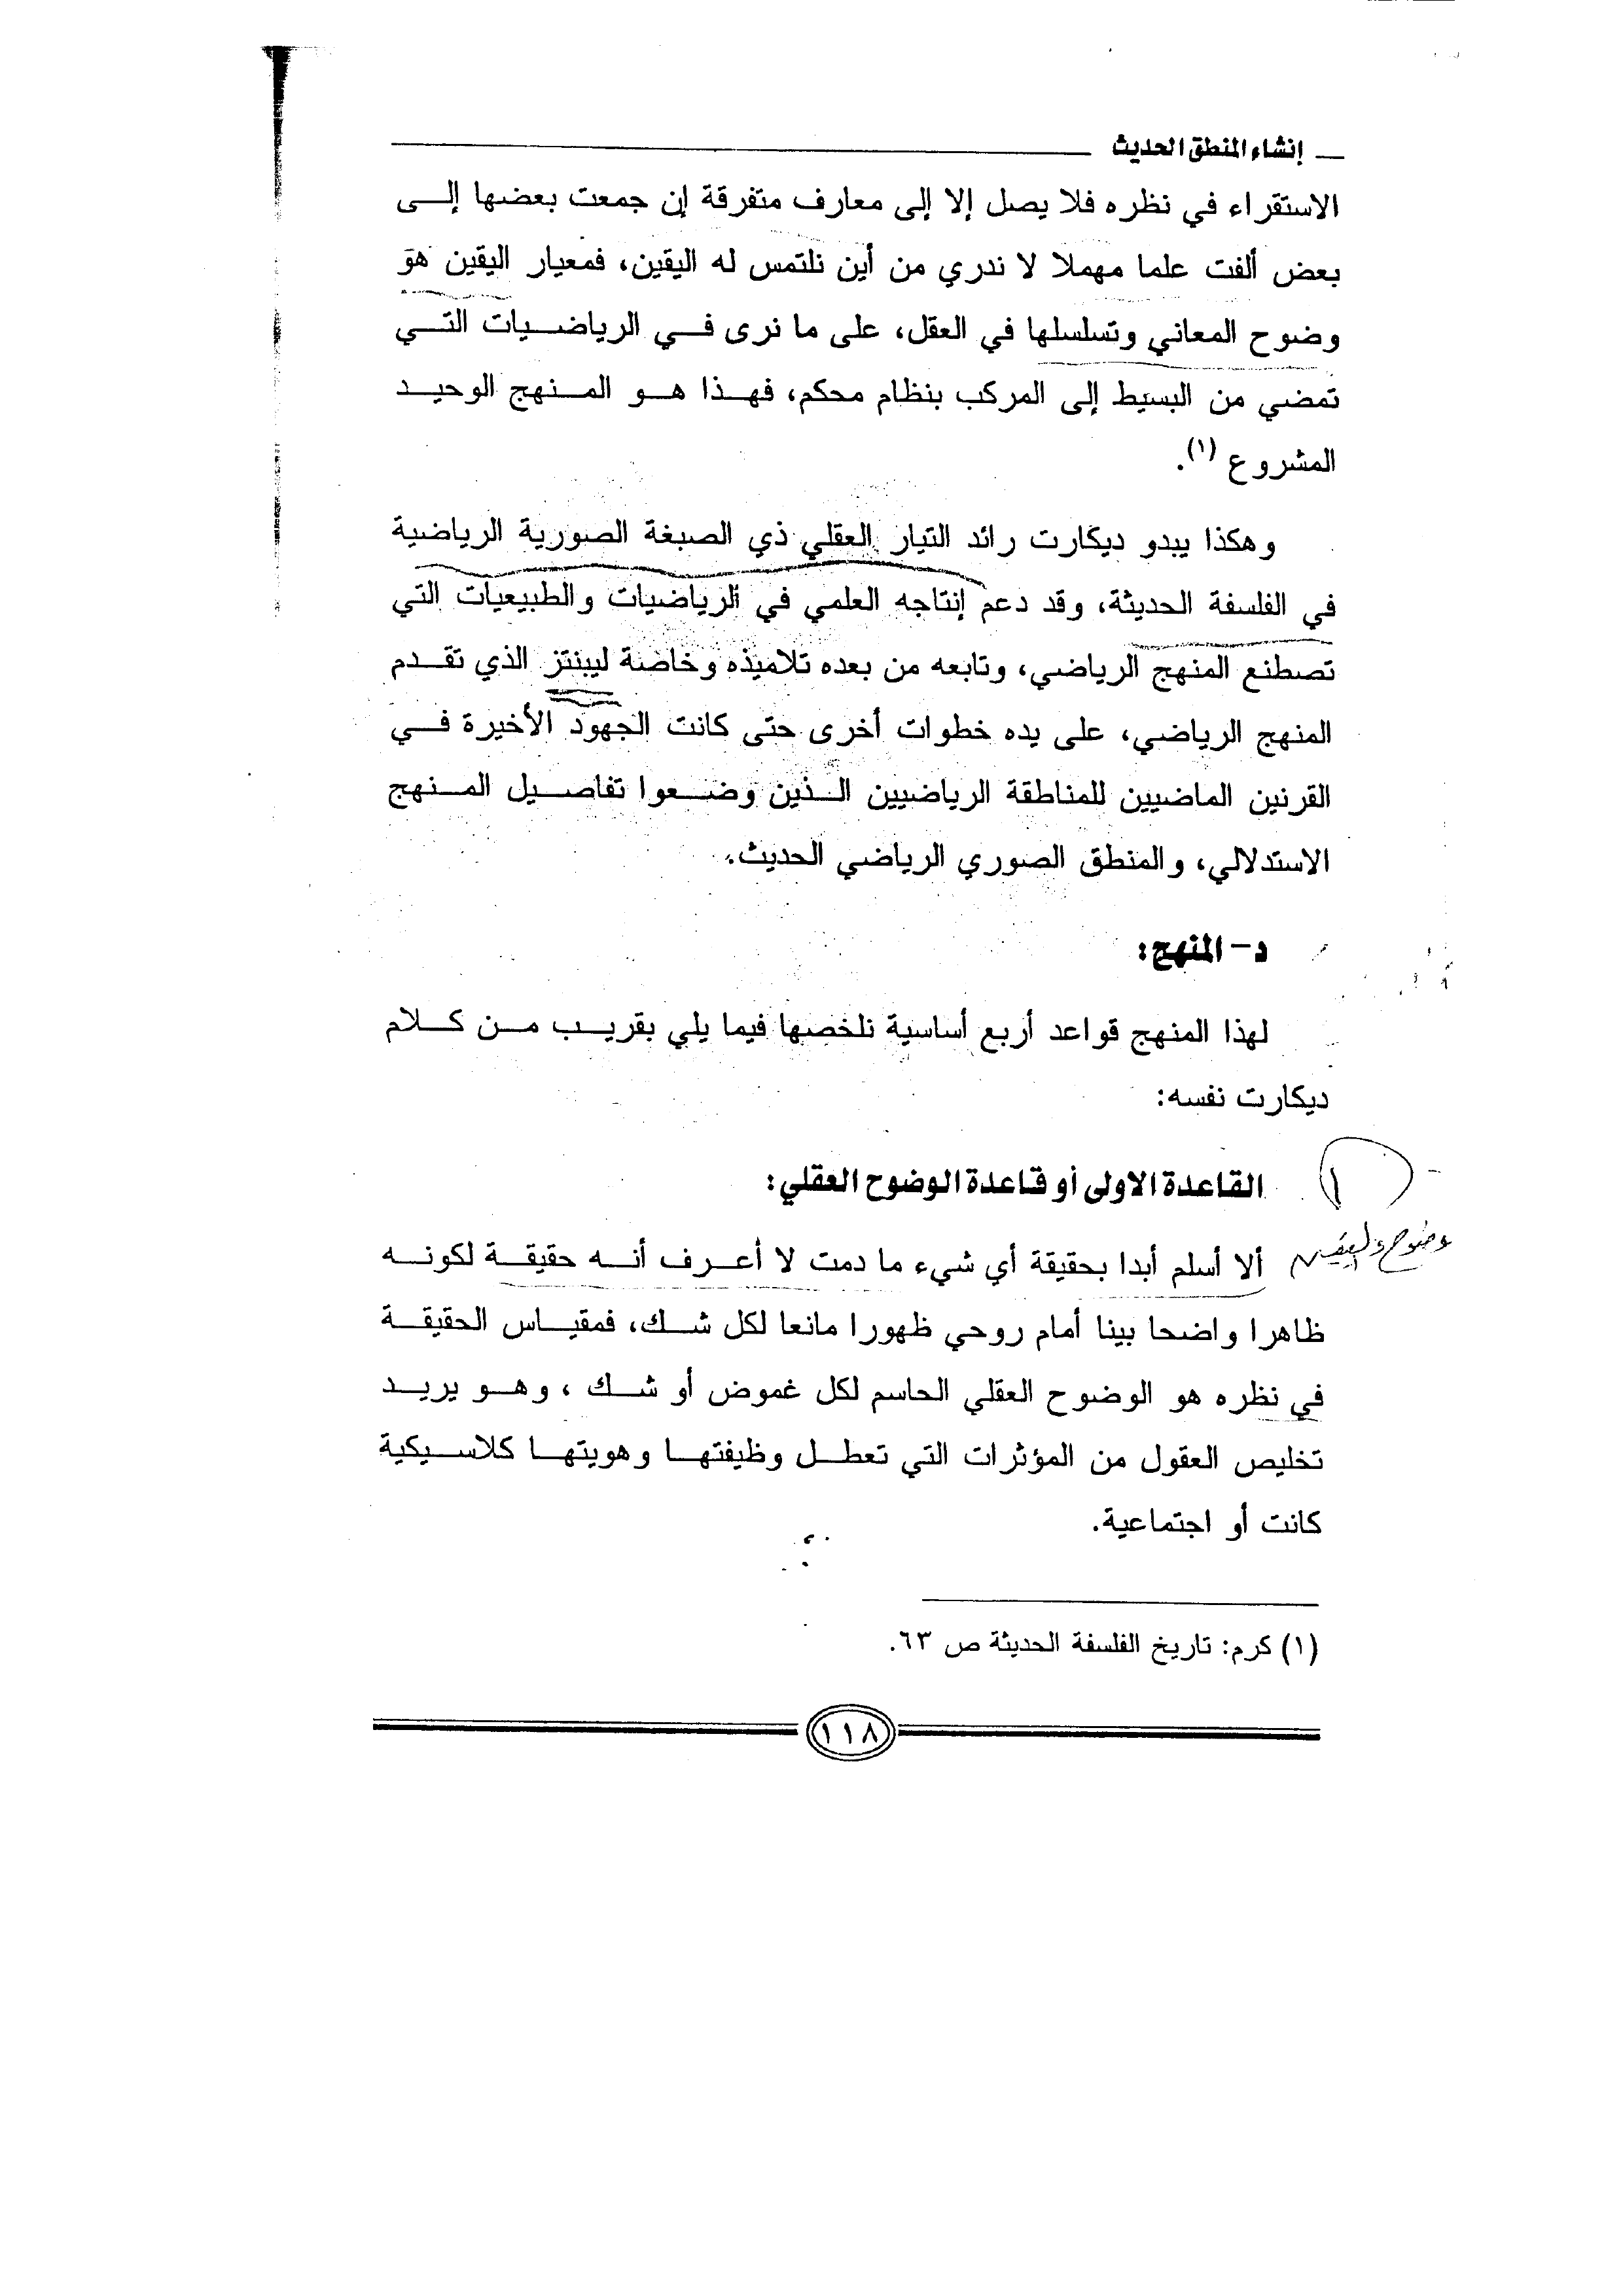 إنشاء المنطق الحديث
الاستقراء في نظره فلا يصل إلا إلى معارف متفرقة إن جمعت بعضها إلى
بعض ألفت علما مهملا لا ندري من أين نلتمس له اليقين، فمعيار اليقين هو
وضوح المعاني وتسلسلها في العقل، على ما نرى في الرياضيات التي
تمضي من البسيط إلى المركب بنظام محكم، فهذا هو المنهج الوحيد
المشروع (١).
وهكذا يبدو ديكارت رائد التيار العقلي ذي الصبغة الصورية الرياضية
في الفلسفة الحديثة، وقد دعم إنتاجه العلمي في الرياضيات والطبيعيات التي
تصطنع المنهج الرياضي، وتابعه من بعده تلاميذه وخاصة ليبنتز الذي تقدم
المنهج الرياضي، على يده خطوات أخرى حتى كانت الجهود الأخيرة في
القرنين الماضيين للمناطقة الرياضيين الذين وضعوا تفاصيل المنهج
الاستدلالي، والمنطق الصوري الرياضي الحديث.
د- المنهج:
لهذا المنهج قواعد أربع أساسية نلخصها فيما يلي بقريب من كلام
ديكارت نفسه:
١ القاعدة الاولى أو قاعدة الوضوح العقلي:
وضوح واليقين
ألا أسلم أبدا بحقيقة أي شيء ما دمت لا أعرف أنه حقيقة لكونه
ظاهرا واضحا بينا أمام روحي ظهورا مانعا لكل شك، فمقياس الحقيقة
في نظره هو الوضوح العقلي الحاسم لكل غموض أو شك ، وهو يريد
تخليص العقول من المؤثرات التي تعطل وظيفتها وهويتها كلاسيكية
كانت أو اجتماعية.
(١) كرم: تاريخ الفلسفة الحديثة ص ٦٣.
١١٨